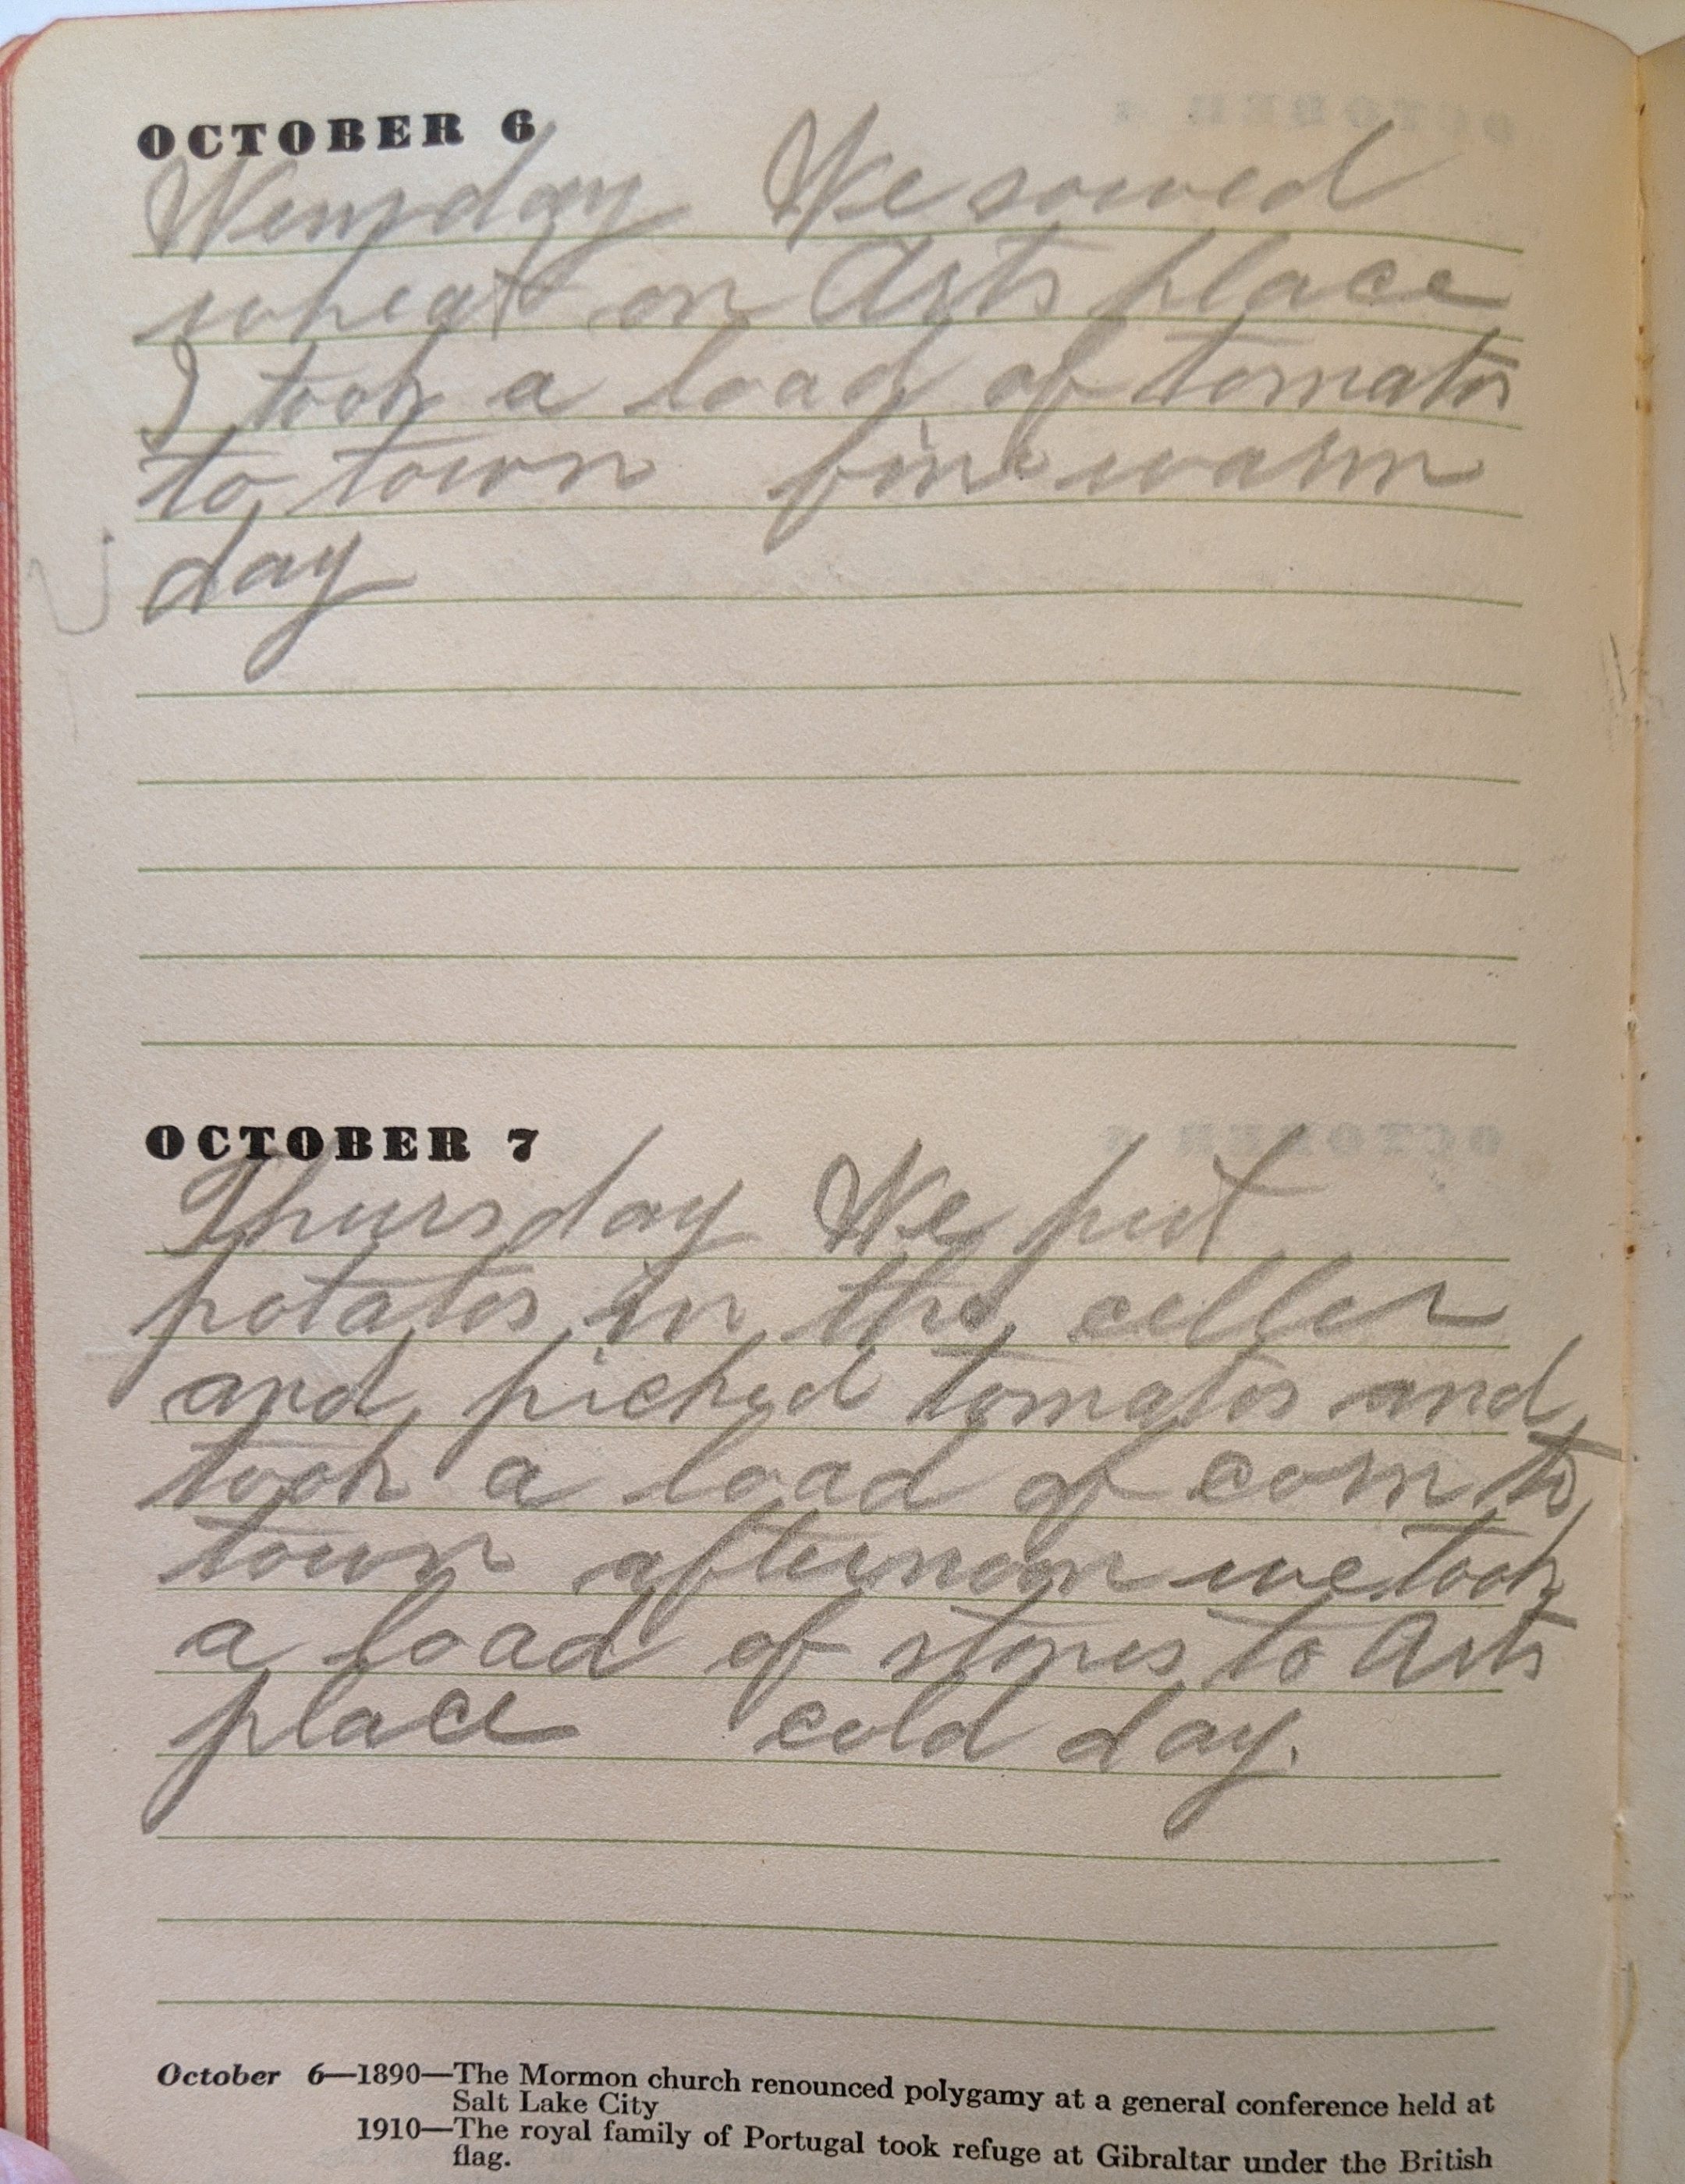 OCTOBER 6
Wensday We sowed
wheat on Arts place
I took a load of tomatos
to town fine warm
day
OCTOBER 7
Thursday We put
potatos in the celler
and picked tomatos and
took a load of corn to
town afternoon we took
a load of stones to Arts
place cold day.
October 6—1890—The Mormon church renounced polygamy at a general conference held at
Salt Lake City
1910—The royal family of Portugal took refuge at Gibraltar under the British
flag.